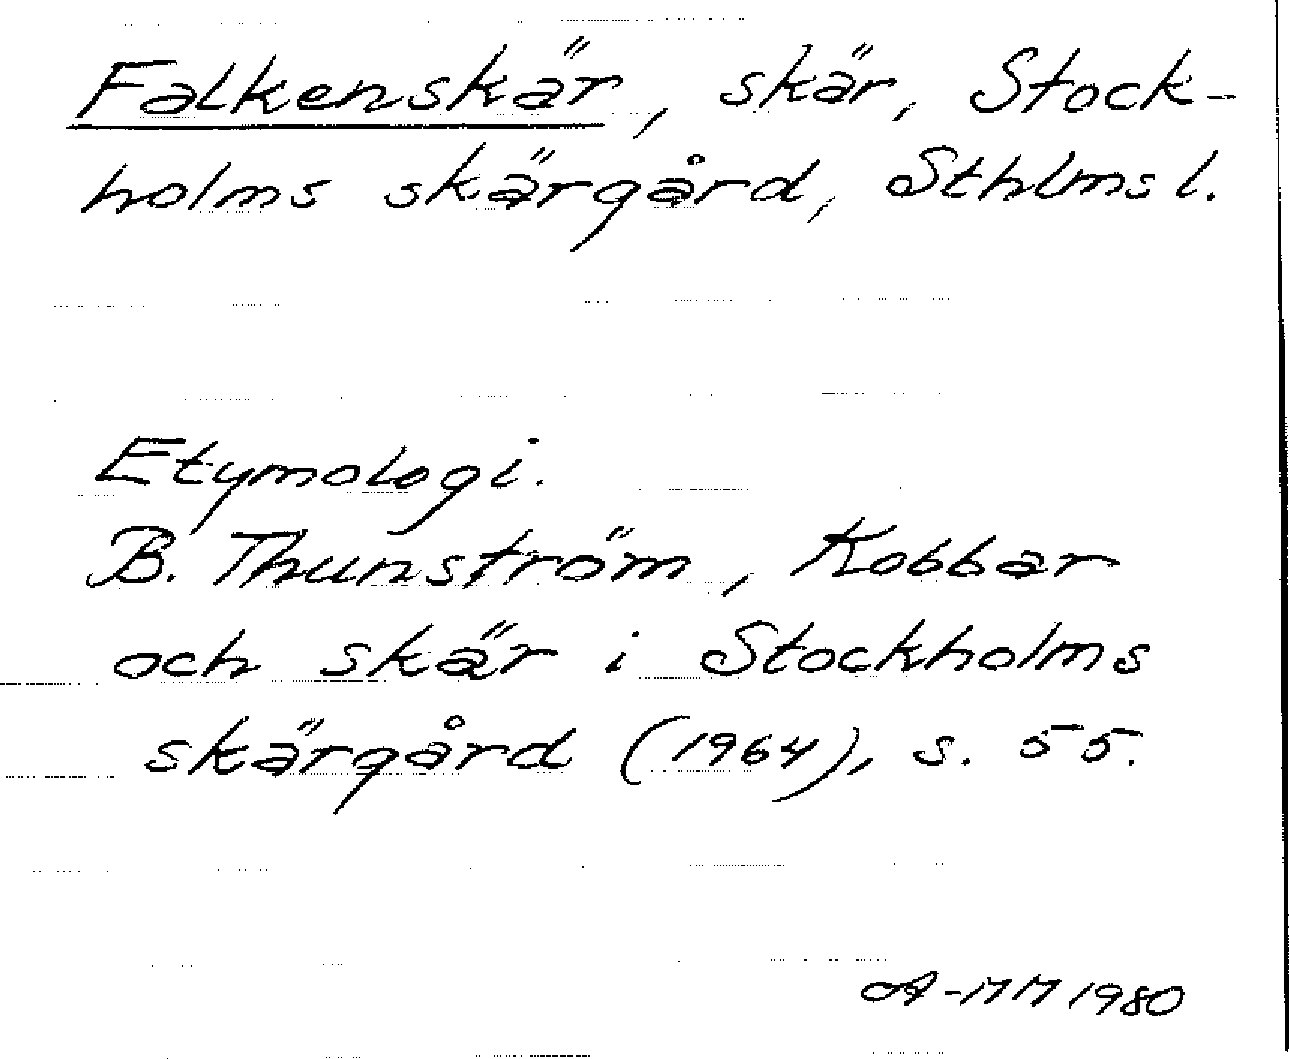 Falkenskär, skär, Stock-
holms skärgård, Sthlms l.
Etymologi.
B. Thunström, Kobbar
och skär i Stockholms
skärgård (1964), s. 55.
A-MM 1980